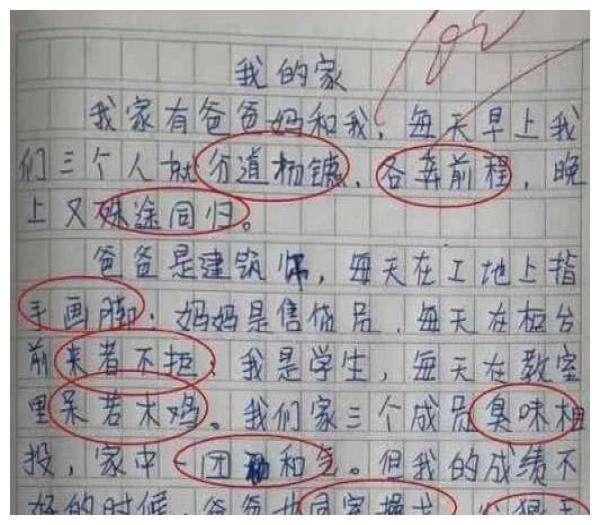 我的家
我家有爸爸妈和我，每天早上我
们三个人就分道杨镳，各奔前程，晚
上又殊途同归。
爸爸是建筑师，每天在工地上指
手画脚；妈妈是售货员，每天在柜台
前来者不拒；我是学生，每天在教室
里呆若木鸡。我们家三个成员臭味相
投，家中一团和气。但我的成绩不
好的时候，爸爸也同室操戈，心狠手